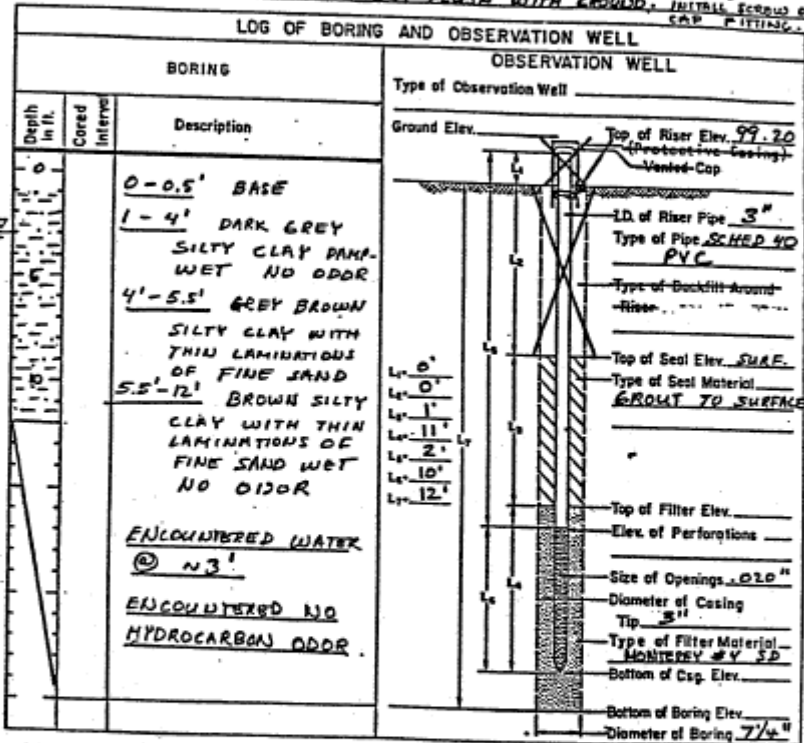 WITH GROUND. INSTALL SCREW
CAP FITTING.
LOG OF BORING AND OBSERVATION WELL
BORING
Depth in ft.
Cored Interval
Description
0
5
10
0-0.5' BASE
1-4' DARK GREY
SILTY CLAY DAMP-
WET NO ODOR
4'-5.5' GREY BROWN
SILTY CLAY WITH
THIN LAMINATIONS
OF FINE SAND
5.5'-12' BROWN SILTY
CLAY WITH THIN
LAMINATIONS OF
FINE SAND WET
NO ODOR
ENCOUNTERED WATER
@ ~3'
ENCOUNTERED NO
HYDROCARBON ODOR
OBSERVATION WELL
Type of Observation Well
Ground Elev.
Top of Riser Elev. 99.20
(Protective Casing)
Vented Cap
I.D. of Riser Pipe 3"
Type of Pipe SCHED 40
PVC
Type of Backfill Around
Riser
Top of Seal Elev. SURF.
Type of Seal Material
GROUT TO SURFACE
Top of Filter Elev.
Elev. of Perforations
Size of Openings .020"
Diameter of Casing
Tip 3"
Type of Filter Material
MONTEREY #4 SD
Bottom of Csg. Elev.
Bottom of Boring Elev.
Diameter of Boring 7 1/4"
L₁= 0'
L₂= 0'
L₃= 1'
L₄= 11'
L₅= 2'
L₆= 10'
L₇= 12'
L₁
L₂
L₅
L₃
L₇
L₄
L₆